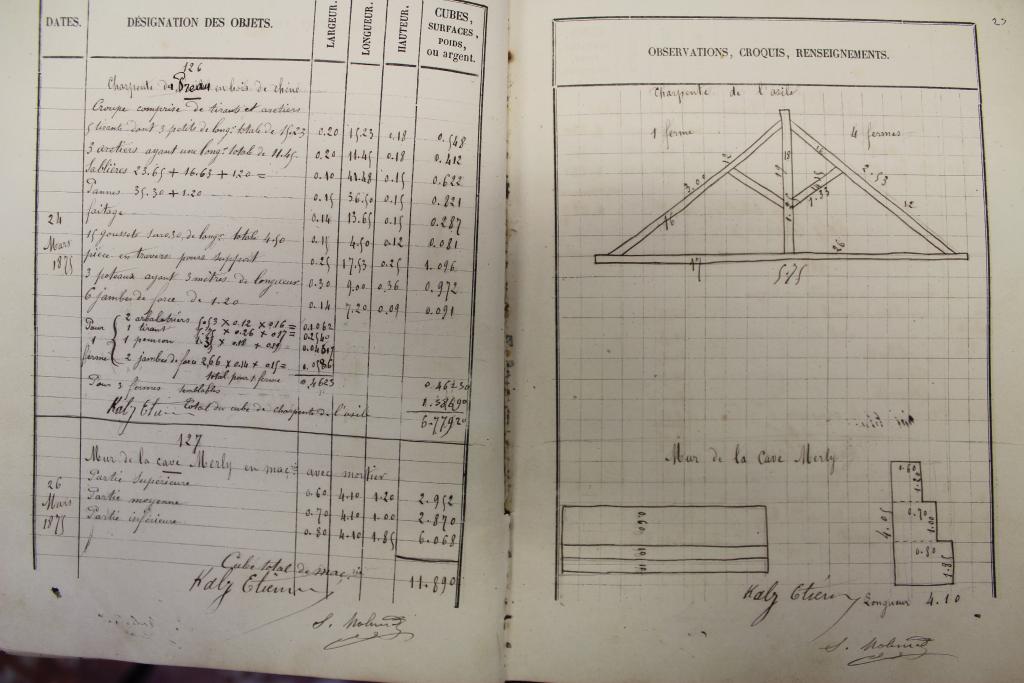 DATES.
DÉSIGNATION DES OBJETS.
LARGEUR.
LONGUEUR.
HAUTEUR.
CUBES,
SURFACES,
POIDS,
ou argent.
126
Charpente du Preau en bois de chêne
Croupe comprise de tirants et aretiers
5 tirants dont 3 petits de longr totale de 15.23 0.20 15.23 0.18 0.548
3 aretiers ayant une longr totale de 11.45 0.20 11.45 0.18 0.412
Sablières 23.65 + 16.63 + 1.20 = 0.10 41.48 0.15 0.622
Pannes 35.30 + 1.20 0.15 36.50 0.15 0.821
faitage 0.14 13.65 0.15 0.287
24
Mars
1875
15 goussets de longr totale 4.50 0.15 4.50 0.12 0.081
pièce en travers pour support 0.25 17.53 0.25 1.096
3 poteaux ayant 3 mètres de longueur 0.30 9.00 0.36 0.972
6 jambes de force de 1.20 0.14 7.20 0.09 0.091
Pour 1 ferme
2 arbalétriers 5.53 × 0.12 × 0.16 = 0.1062
1 tirant 5.75 × 0.26 × 0.17 = 0.2540
1 poinçon
2 jambes de force 2.66 × 0.14 × 0.15 =
total pour 1 ferme 0.4623 0.46230
Pour 3 fermes semblables 1.38690
Kalz Etienne Total du cube de charpente de l'asile 6.77920
127
Mur de la cave Merly en maçrie avec mortier
26
Mars
1875
Partie supérieure 0.60 4.10 1.20 2.952
Partie moyenne 0.70 4.10 1.00 2.870
Partie inférieure 0.80 4.10 1.85 6.068
Cube total de maçrie 11.890
Kalz Etienne
S. Molined
OBSERVATIONS, CROQUIS, RENSEIGNEMENTS.
Charpente de l'asile
1 ferme
4 fermes
3.00
16
18
1.33
2.53
12
26
17
5.75
Mur de la Cave Merly
0.60
1.20
0.70
1.00
4.05
0.80
1.85
0.60
10
10
Kalz Etienne
Longueur 4.10
S. Molined